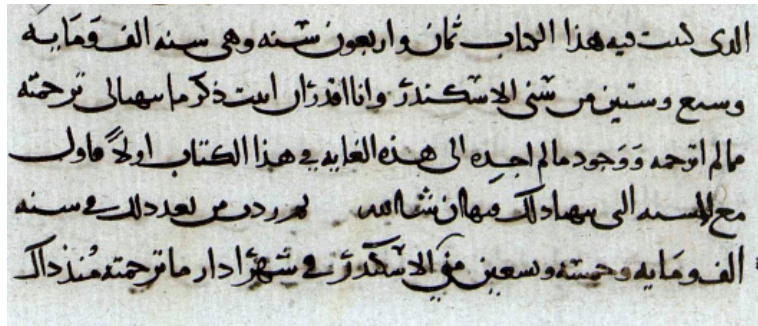 الذى كتبت فيه هذا الكتاب ثمان واربعون سنه وهى سنه الف ومايه
وسبع وستين من سنى الاسكندر وانا اقدر ان اثبت ذكر ما يتهيا لى ترجمته
مما لم اترجمه ووجود مالم اجده الى هذه الغايه فى هذا الكتاب اولاً فاول
مع السنه التى يتهيا ذلك فيها ان شا الله ثم زدت من بعد ذلك فى سنه
الف ومايه وخمسه وسبعين سنى الاسكندر فى شهر اذار ما ترجمته مُنذ ذاك